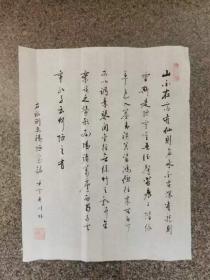 山不在高有仙则名水不在深有龙则
灵斯是陋室惟吾德馨苔痕上阶绿
草色入帘青谈笑有鸿儒往来无白丁
可以调素琴阅金经无丝竹之乱耳无
案牍之劳形南阳诸葛庐西蜀子云
亭孔子云何陋之有
右录刘禹锡陋室铭